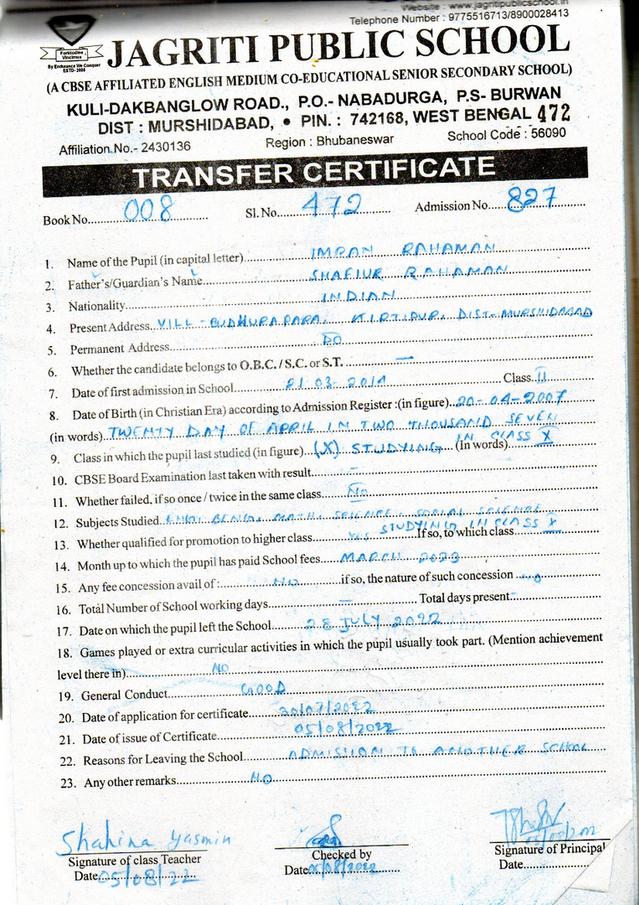 Website : www.jagritipublicschool.in
Telephone Number : 9775516713/8900028413
Fortitudine Vincimus
By Endurance We Conquer
ESTD-2006
JAGRITI PUBLIC SCHOOL
(A CBSE AFFILIATED ENGLISH MEDIUM CO-EDUCATIONAL SENIOR SECONDARY SCHOOL)
KULI-DAKBANGLOW ROAD., P.O.- NABADURGA, P.S- BURWAN
DIST : MURSHIDABAD, • PIN. : 742168, WEST BENGAL 472
Affiliation.No.- 2430136 Region : Bhubaneswar School Code : 56090
TRANSFER CERTIFICATE
Book No. 008 Sl. No. 472 Admission No. 827
1. Name of the Pupil (in capital letter) IMRAN RAHAMAN
2. Father's/Guardian's Name SHAFIUR RAHAMAN
3. Nationality INDIAN
4. Present Address VILL-BUDHURAPARA, KIRTIPUR, DIST-MURSHIDABAD
5. Permanent Address DO
6. Whether the candidate belongs to O.B.C. / S.C. or S.T. —
7. Date of first admission in School 21 03 2014 Class II
8. Date of Birth (in Christian Era) according to Admission Register :(in figure) 20-04-2007
(in words) TWENTY DAY OF APRIL IN TWO THOUSAND SEVEN
9. Class in which the pupil last studied (in figure) (X) STUDYING IN CLASS X (In words)
10. CBSE Board Examination last taken with result –
11. Whether failed, if so once / twice in the same class No
12. Subjects Studied ENG, BENG, MATH, SCIENCE, SOCIAL SCIENCE
13. Whether qualified for promotion to higher class YES STUDYING IN CLASS X If so, to which class —
14. Month up to which the pupil has paid School fees MARCH 2023
15. Any fee concession avail of : NO if so, the nature of such concession
16. Total Number of School working days — Total days present -
17. Date on which the pupil left the School 28 JULY 2022
18. Games played or extra curricular activities in which the pupil usually took part. (Mention achievement
level there in) NO
19. General Conduct GOOD
20. Date of application for certificate 30/07/2022
21. Date of issue of Certificate 05/08/2022
22. Reasons for Leaving the School ADMISSION TO ANOTHER SCHOOL
23. Any other remarks NO
Shahina Yasmin
Signature of class Teacher Checked by Signature of Principal
Date 05/08/22 Date 05/08/2022 Date